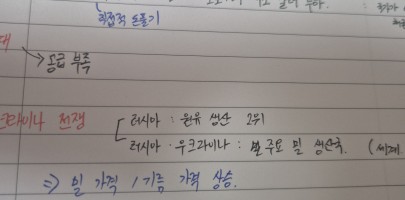 직접적 돈풀기
→ 공급 부족
크라이나 전쟁
러시아 : 원유 생산 2위
러시아·우크라이나 : 주요 밀 생산국. (세계
⇒ 밀 가격 / 기름 가격 상승.